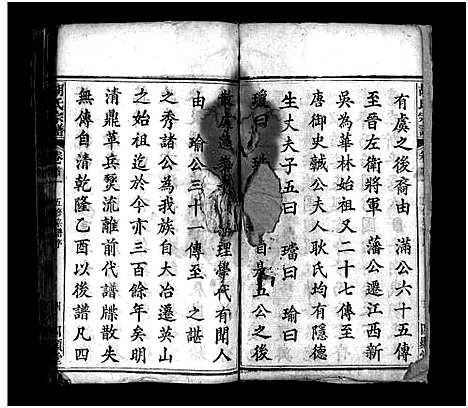 有虞之後裔由 滿公六十五傳
至晉左衛將軍 藩公遷江西新
吳為華林始祖又二十七傳至
唐御史 公夫人耿氏均有隱德
生丈夫子五曰 璫曰 瑜曰
瓊曰 自是五公之後
理學代有聞人
由 瑜公三十一傳至 之諶
之秀諸公為我族自大冶遷英山
之始祖迄於今亦三百餘年矣明
清鼎革兵燹流離前代譜牒散失
無傳自清乾隆乙酉以後譜凡四
胡氏宗譜